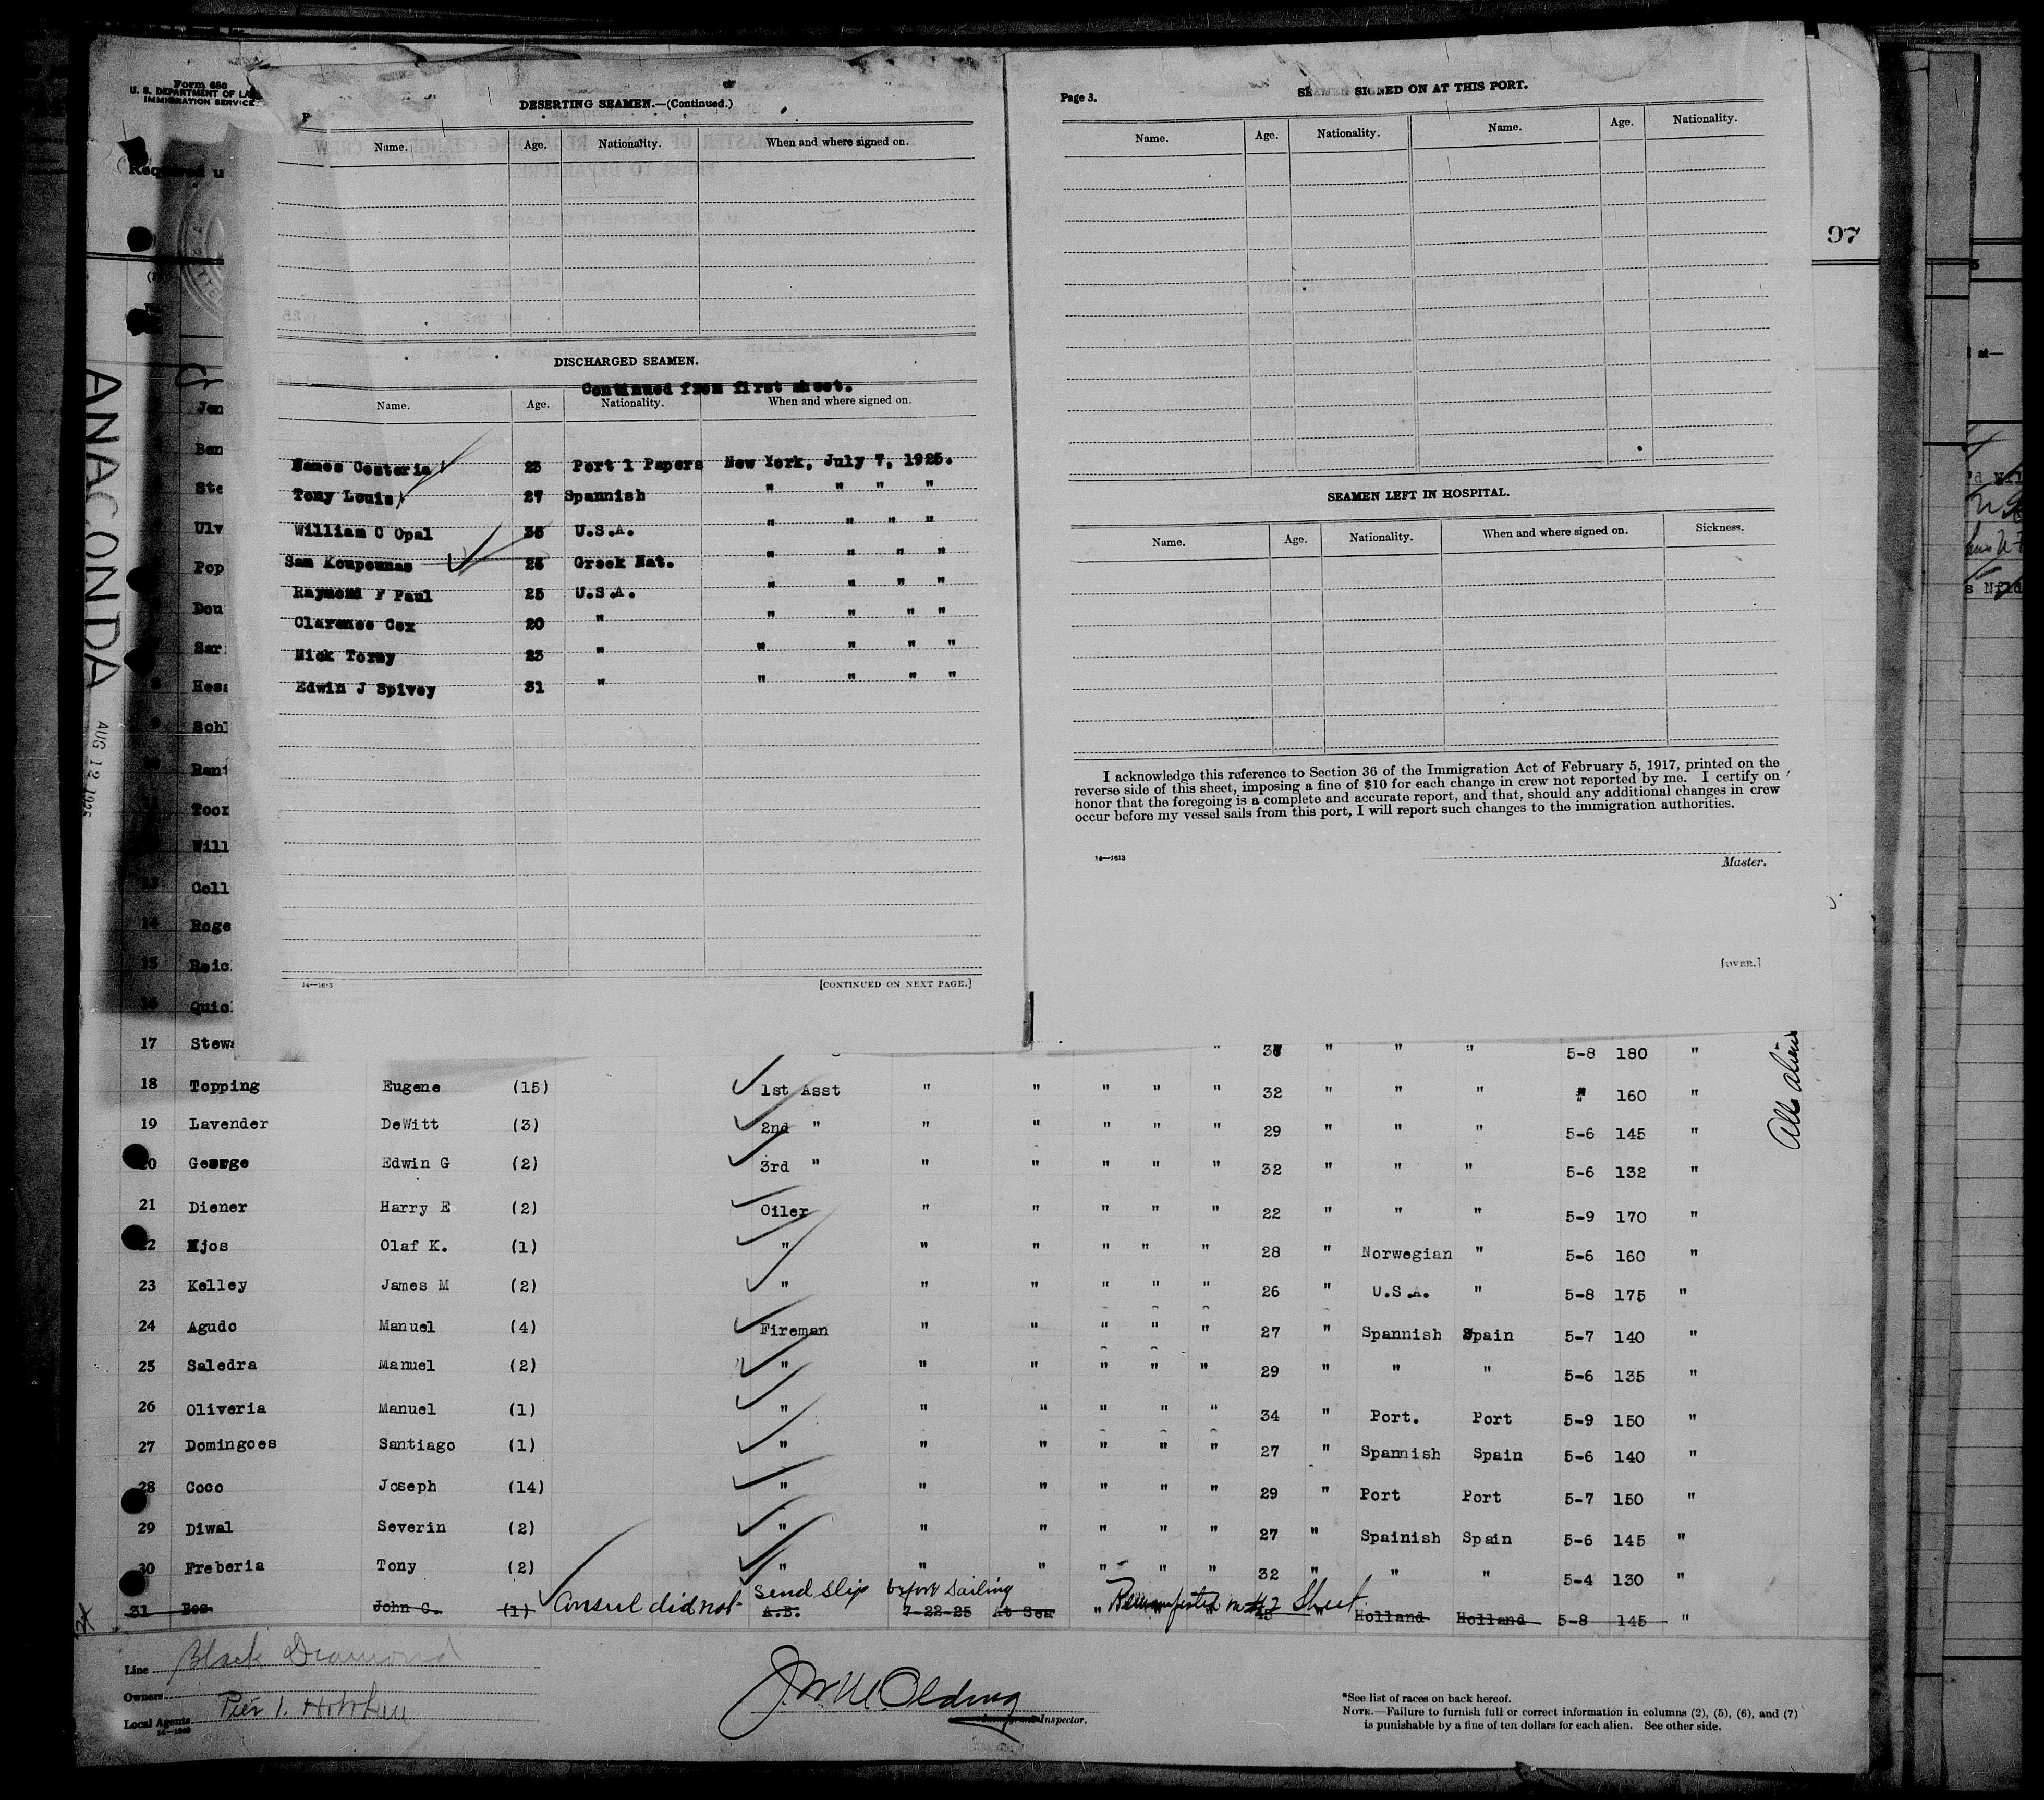 Form 680
U. S. DEPARTMENT OF LA
IMMIGRATION SERVICE
Required u
ANACONDA
AUG 12 1925
DESERTING SEAMEN.—(Continued.)
Name. Age. Nationality. When and where signed on.
DISCHARGED SEAMEN.
Continued from first sheet.
Name. Age. Nationality. When and where signed on.
Costeria 25 Port 1 Papers New York, July 7, 1925.
Tony Louis 27 Spannish " " " "
William C Opal 35 U.S.A. " " " "
Sam Koupounas 25 Greek Nat. " " " "
Raymond F Paul 25 U.S.A. " " " "
Clarence Cox 20 " " " " "
Nick Tormy 23 " " " " "
Edwin J Spivey 31 " " " " "
14—1613
[CONTINUED ON NEXT PAGE.]
Page 3.
SEAMEN SIGNED ON AT THIS PORT.
Name. Age. Nationality. Name. Age. Nationality.
SEAMEN LEFT IN HOSPITAL.
Name. Age. Nationality. When and where signed on. Sickness.
I acknowledge this reference to Section 36 of the Immigration Act of February 5, 1917, printed on the
reverse side of this sheet, imposing a fine of $10 for each change in crew not reported by me. I certify on
honor that the foregoing is a complete and accurate report, and that, should any additional changes in crew
occur before my vessel sails from this port, I will report such changes to the immigration authorities.
14—1613
Master.
[OVER.]
97
Jen
Ben
Ste
Ulv
Pop
Dou
Sar
Hess
Sohl
Toor
Will
Coll
14 Roge
15 Reic
16 Quic
17 Stewa " 38 " " " 5-8 180 "
18 Topping Eugene (15) 1st Asst " " " " " 32 " " " " 160 "
19 Lavender DeWitt (3) 2nd " " " " " " 29 " " " 5-6 145 "
20 George Edwin G (2) 3rd " " " " " " 32 " " " 5-6 132 "
21 Diener Harry E (2) Oiler " " " " " 22 " " " 5-9 170 "
22 Njos Olaf K. (1) " " " " " " 28 " Norwegian " 5-6 160 "
23 Kelley James M (2) " " " " " " 26 " U.S.A. " 5-8 175 "
24 Agudo Manuel (4) Fireman " " " " " 27 " Spannish Spain 5-7 140 "
25 Saledra Manuel (2) " " " " " " 29 " " " 5-6 135 "
26 Oliveria Manuel (1) " " " " " " 34 " Port. Port 5-9 150 "
27 Domingoes Santiago (1) " " " " " " 27 " Spannish Spain 5-6 140 "
28 Coco Joseph (14) " " " " " " 29 " Port Port 5-7 150 "
29 Diwal Severin (2) " " " " " " 27 " Spainish Spain 5-6 145 "
30 Freberia Tony (2) " " " " " " 32 " " " 5-4 130 "
Consul did not send slip before sailing
31 Bos John C. (1) A.B. 7-22-25 At Sea " " " Holland Holland 5-8 145 "
Remanifested on #2 Sheet
Line Black Diamond
Owners
Local Agents Pier 1. Hoboken
Inspector.
*See list of races on back hereof.
NOTE.—Failure to furnish full or correct information in columns (2), (5), (6), and (7)
is punishable by a fine of ten dollars for each alien. See other side.